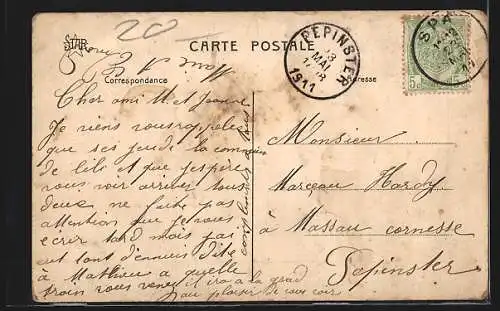 20
STAR
CARTE POSTALE
Correspondance
Adresse
PEPINSTER
MAI
1911
SPA
Cher ami M et
Je viens vous rappeler
que ses jeudi la commun
de lili et que j'espère
vous voir arriver tous
deux ne faite pas
attention que je vous
ecrir tard mois pas
tant d'ennuis dite
à Mathieu a quelle
train vous venez il ira à la
au plaisir de vous voir
compliments à tous
Monsieur
Marceau Hardy
à Massau cornesse
Pepinster